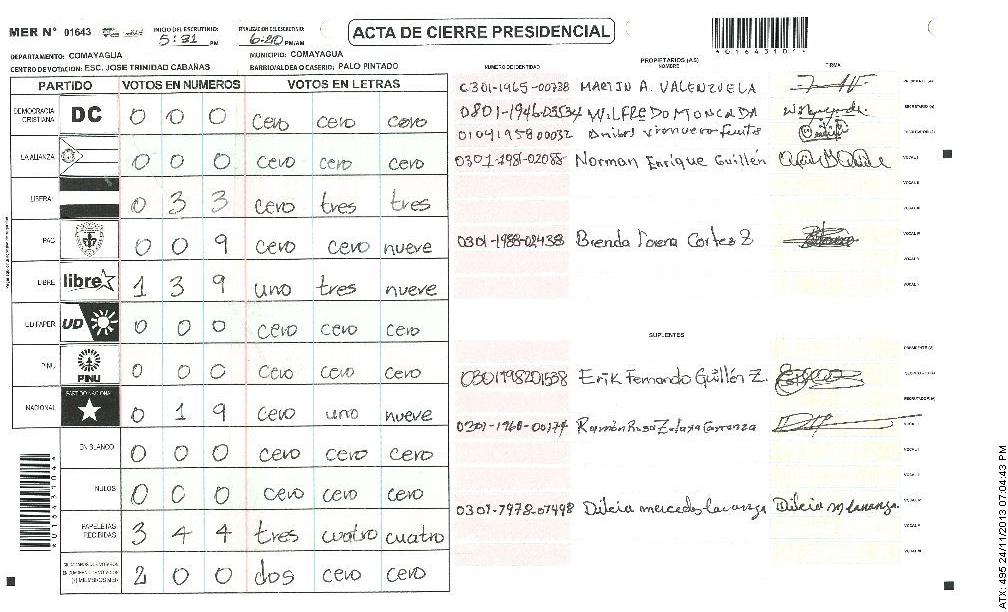 MER N° 01643
INICIO DEL ESCRUTINIO:
5:31 PM
FINALIZACION DEL ESCRUTINIO:
6:20 PM/AM
ACTA DE CIERRE PRESIDENCIAL
DEPARTAMENTO: COMAYAGUA
MUNICIPIO: COMAYAGUA
CENTRO DE VOTACION: ESC. JOSE TRINIDAD CABAÑAS
BARRIO/ALDEA O CASERIO: PALO PINTADO
PARTIDO VOTOS EN NUMEROS VOTOS EN LETRAS
DEMOCRACIA CRISTIANA DC 0 0 0 cero cero cero
LA ALIANZA 0 0 0 cero cero cero
LIBERAL 0 3 3 cero tres tres
PAC 0 0 9 cero cero nueve
LIBRE libre 1 3 9 uno tres nueve
UD FAPER UD 0 0 0 cero cero cero
PINU PINU 0 0 0 cero cero cero
NACIONAL PARTIDO NACIONAL 0 1 9 cero uno nueve
EN BLANCO 0 0 0 cero cero cero
NULOS 0 0 0 cero cero cero
PAPELETAS RECIBIDAS 3 4 4 tres cuatro cuatro
2 0 0 dos cero cero
PROPIETARIOS (AS)
NUMERO DE IDENTIDAD NOMBRE FIRMA
0301-1965-00738 MARTIN A. VALENZUELA
0801-1946-03534 WILFREDO MONCADA
0104195800032
0301-1981-02088 Norman Enrique Guillén
0301-1988-02438 Brenda Lorena Cortez Z
SUPLENTES
0301198201538 Erik Fernando Guillén Z.
0301-1960-00174 Ramón Rosa Zelaya Carranza
0301-1978-01498 Dilcia mercedes Dilcia M
ATX: 495 24/11/2013 07:04:43 PM